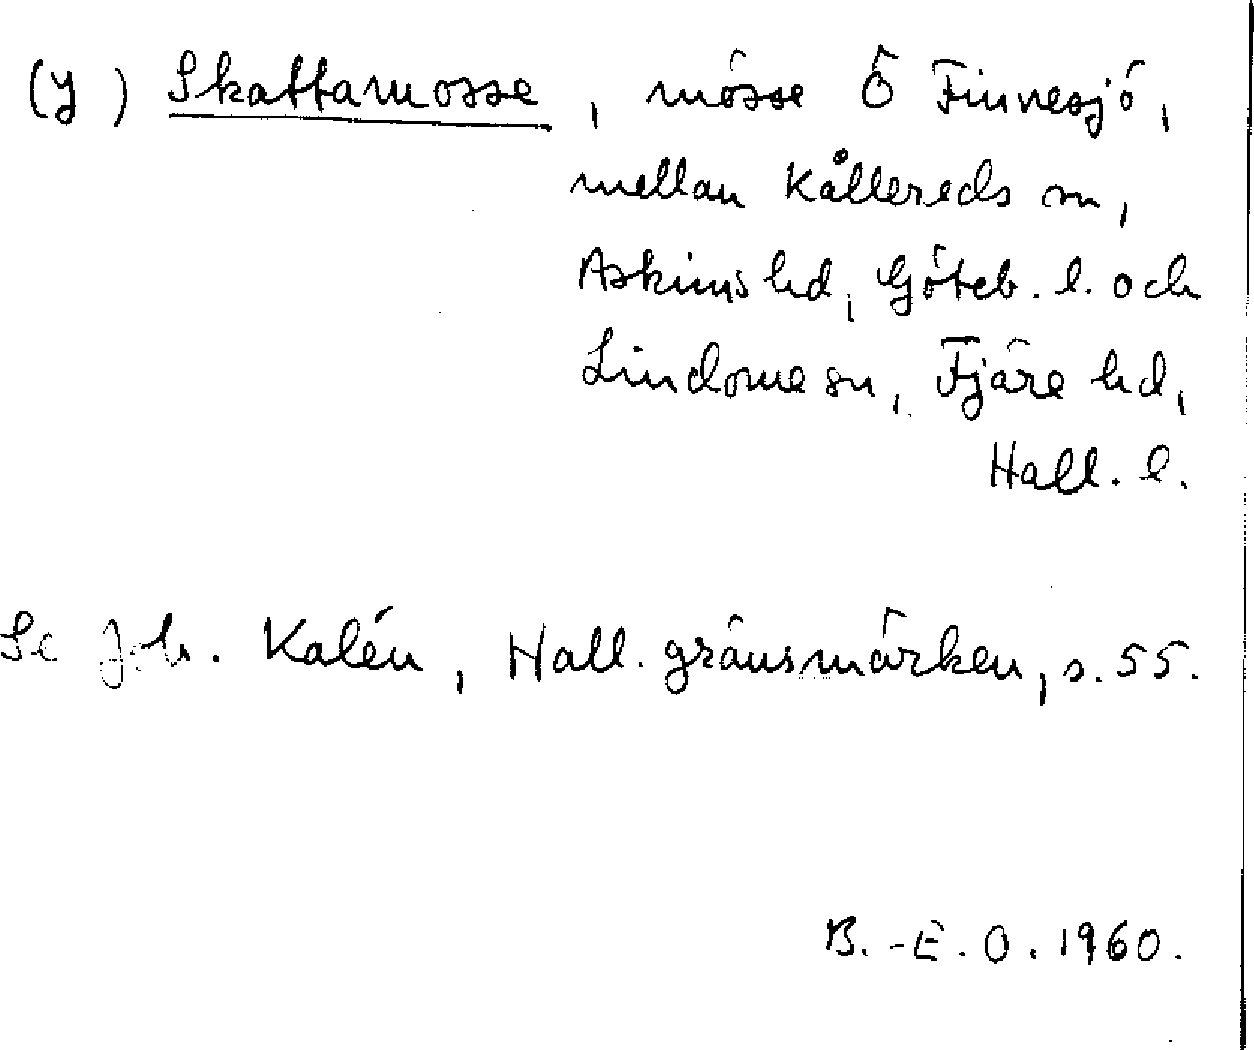 (y) Skattamosse, mosse Ö Finnesjö,
mellan Kållereds sn,
Askims hd, Göteb. l. och
Lindome sn, Fjäre hd,
Hall. l.
Se Joh. Kalén, Hall. gränsmärken, s. 55.
B.-E. O. 1960.